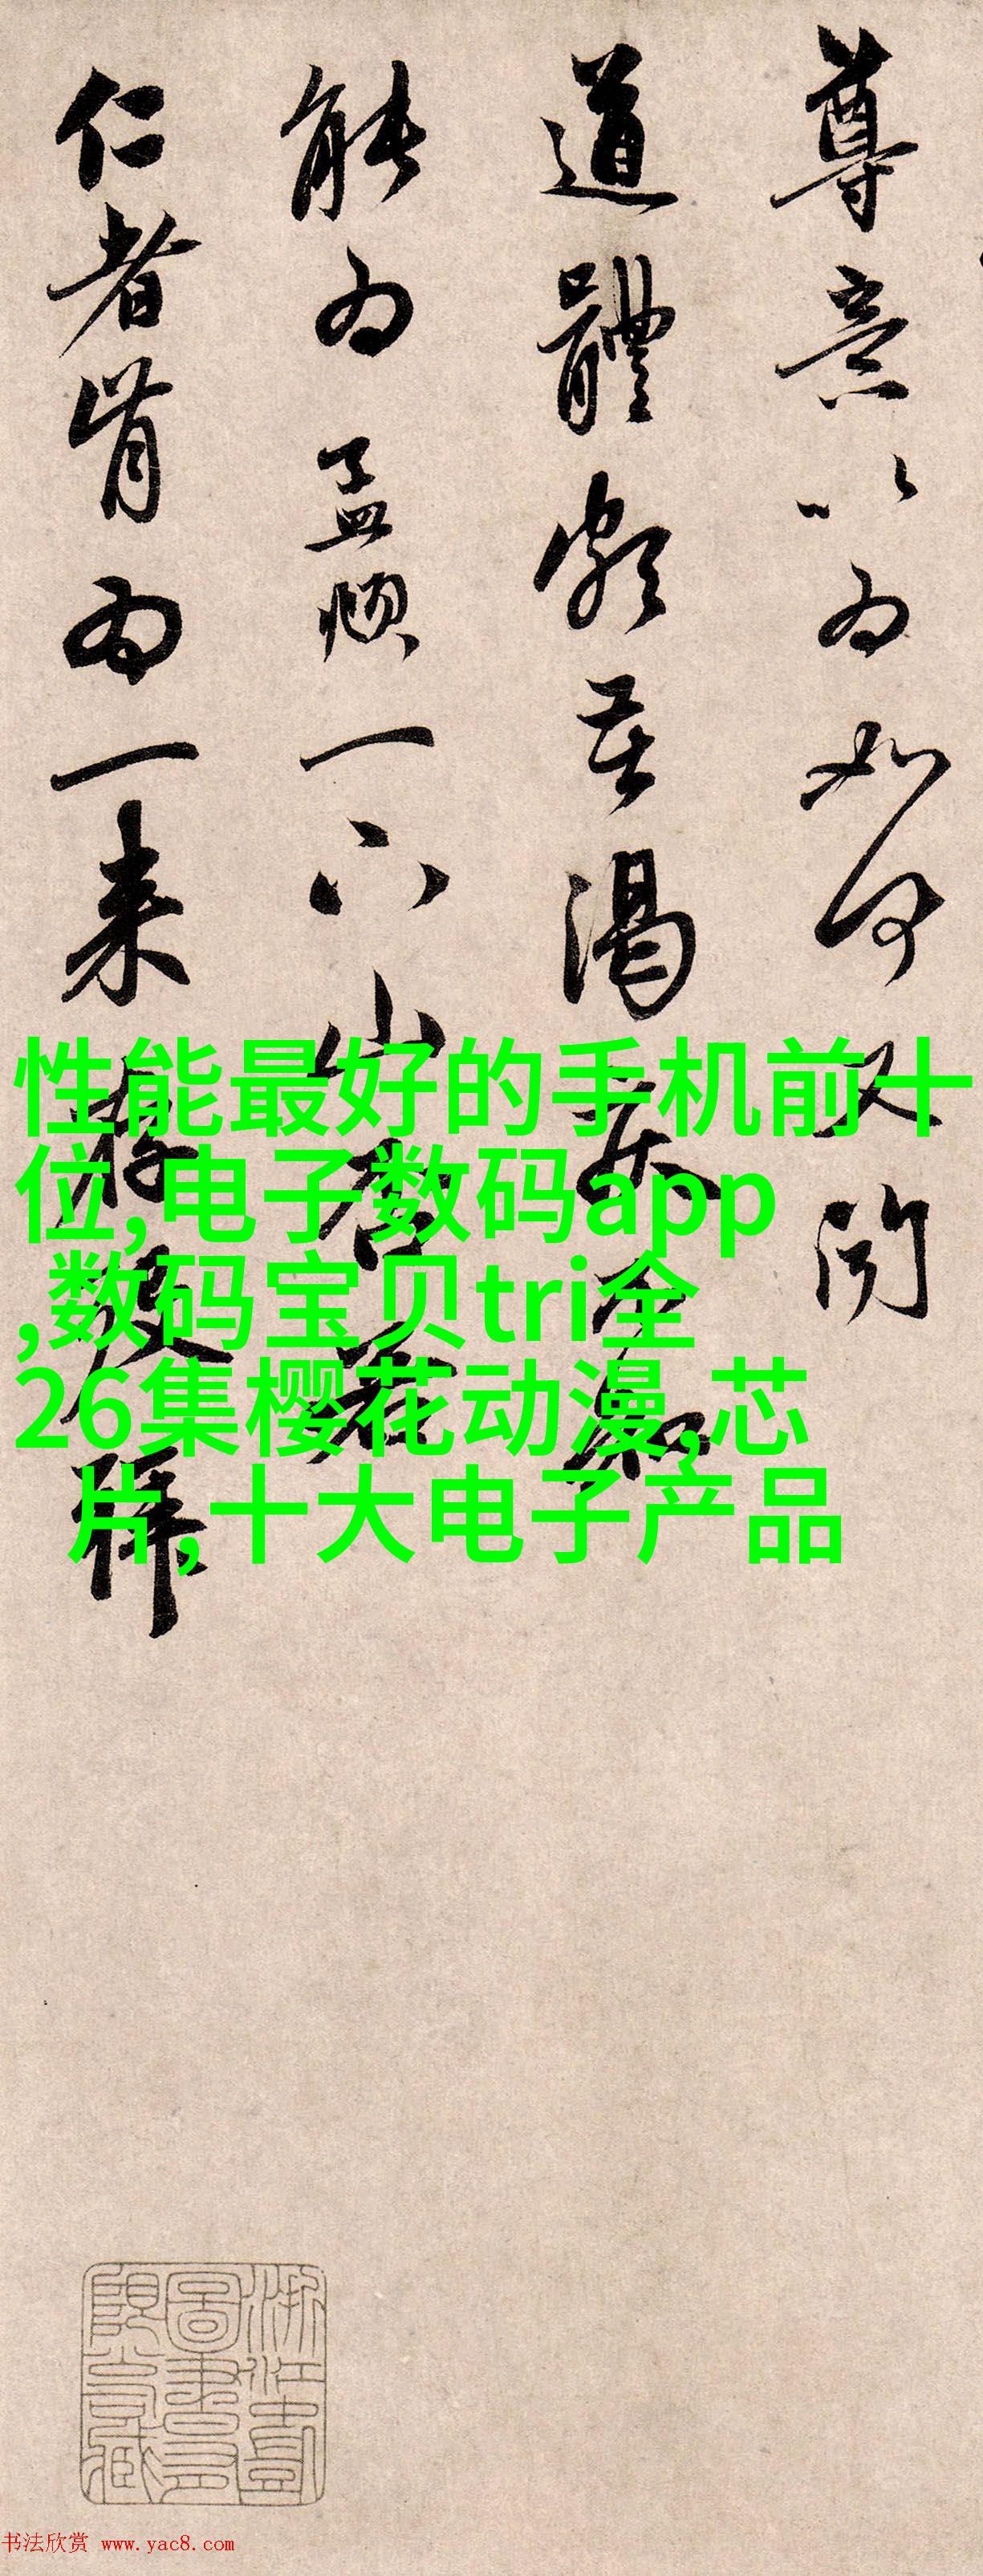 尊意以為如何又聞
道體頗苦渴疾不知
能為孟頫一下山否若
仁者肯為一来
性能最好的手机前十
位,电子数码app
,数码宝贝tri全
26集樱花动漫,芯
片,十大电子产品
书法欣赏 www.yac8.com